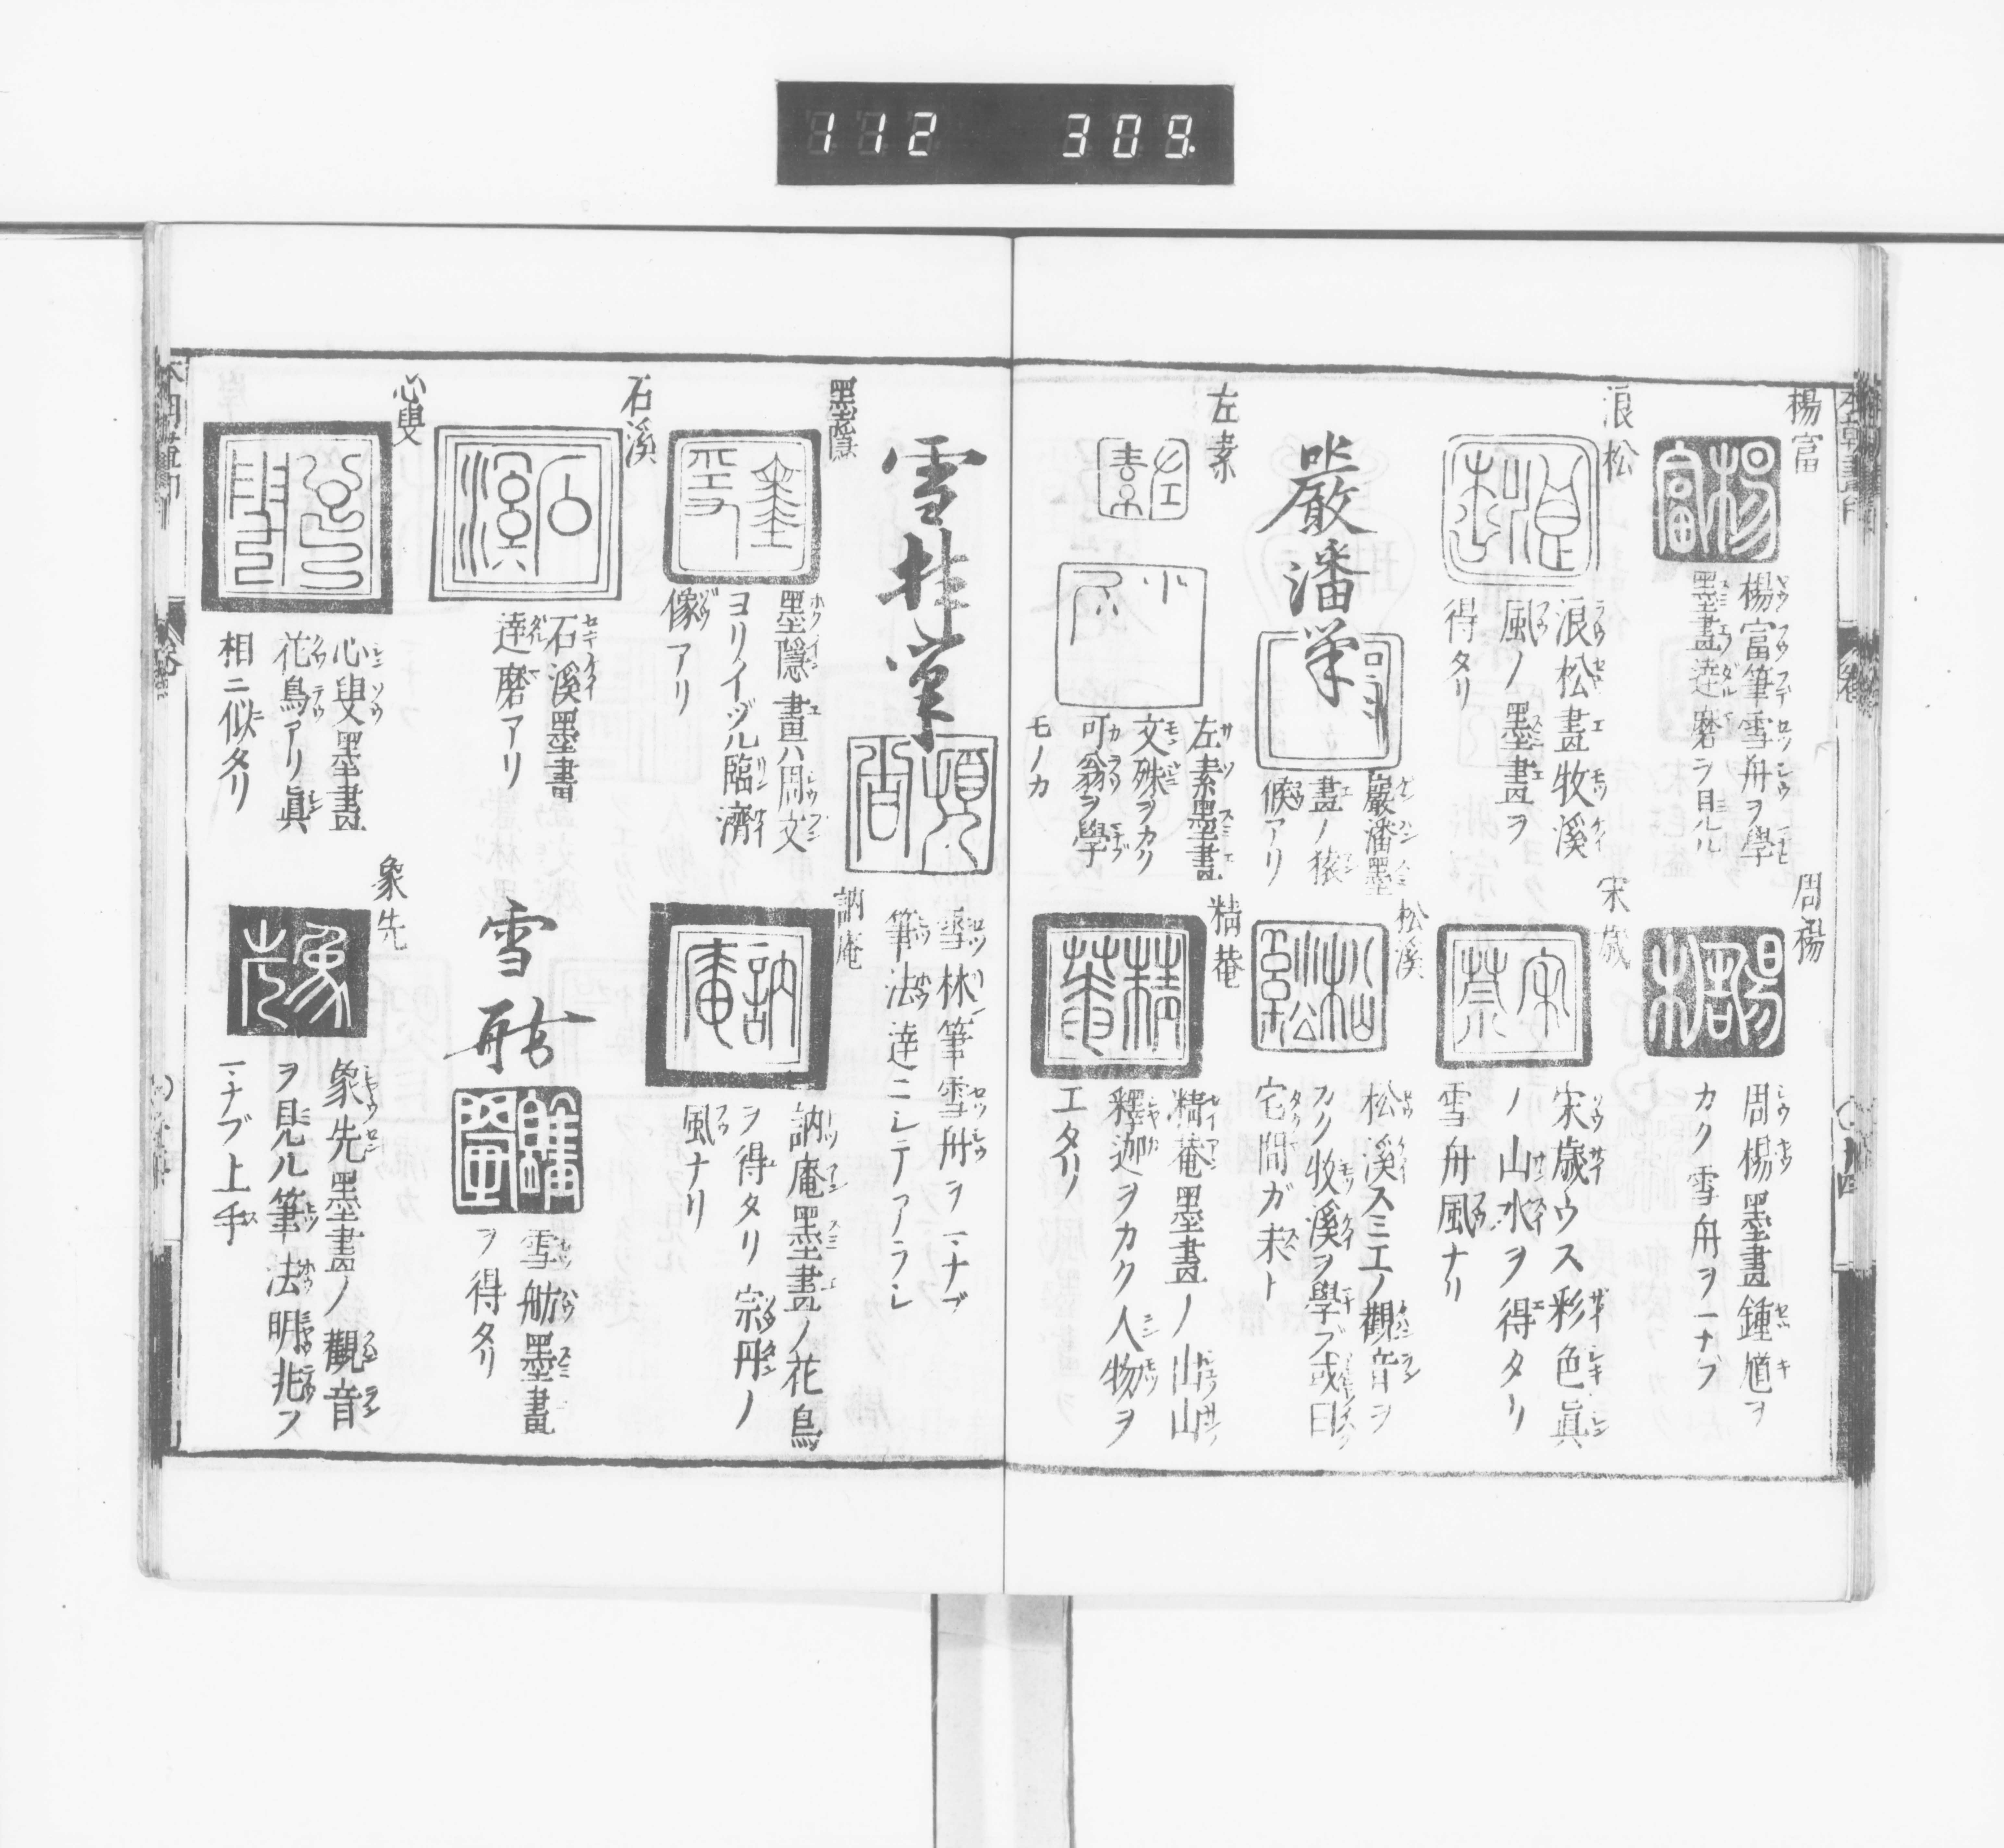 112 309
楊富
楊富筆雪舟ヲ學
墨畫達磨ヲ見ル
周楊
周楊墨畫鍾馗ヲ
カク雪舟ヲマナブ
浪松
浪松畫牧溪
風ノ墨畫ヲ
得タリ
宋歳
宋歳ウス彩色眞
ノ山水ヲ得タリ
雪舟風ナリ
巖潘筆
巖潘墨
畫ノ猿
猴アリ
松溪
松溪スミエノ觀音ヲ
カク牧溪ヲ學ブ或曰
宅間ガ末ト
左素
左素墨畫
文殊ヲカク
可翁ヲ學
モノカ
精菴
精菴墨畫ノ山
釋迦ヲカク人物ヲ
エタリ
雪林筆
雪林筆雪舟ヲマナブ
筆法達ニシテアラシ
墨隱
墨隱畫ハ周文
ヨリイヅル臨濟
像アリ
訥庵
訥庵墨畫ノ花鳥
ヲ得タリ宗丹ノ
風ナリ
石溪
石溪墨畫
達磨アリ
雪舫
雪舫墨畫
ヲ得タリ
心叟
心叟墨畫
花鳥アリ眞
相ニ似タリ
象先
象先墨畫ノ觀音
ヲ見ル筆法明兆ヲ
マナブ上手